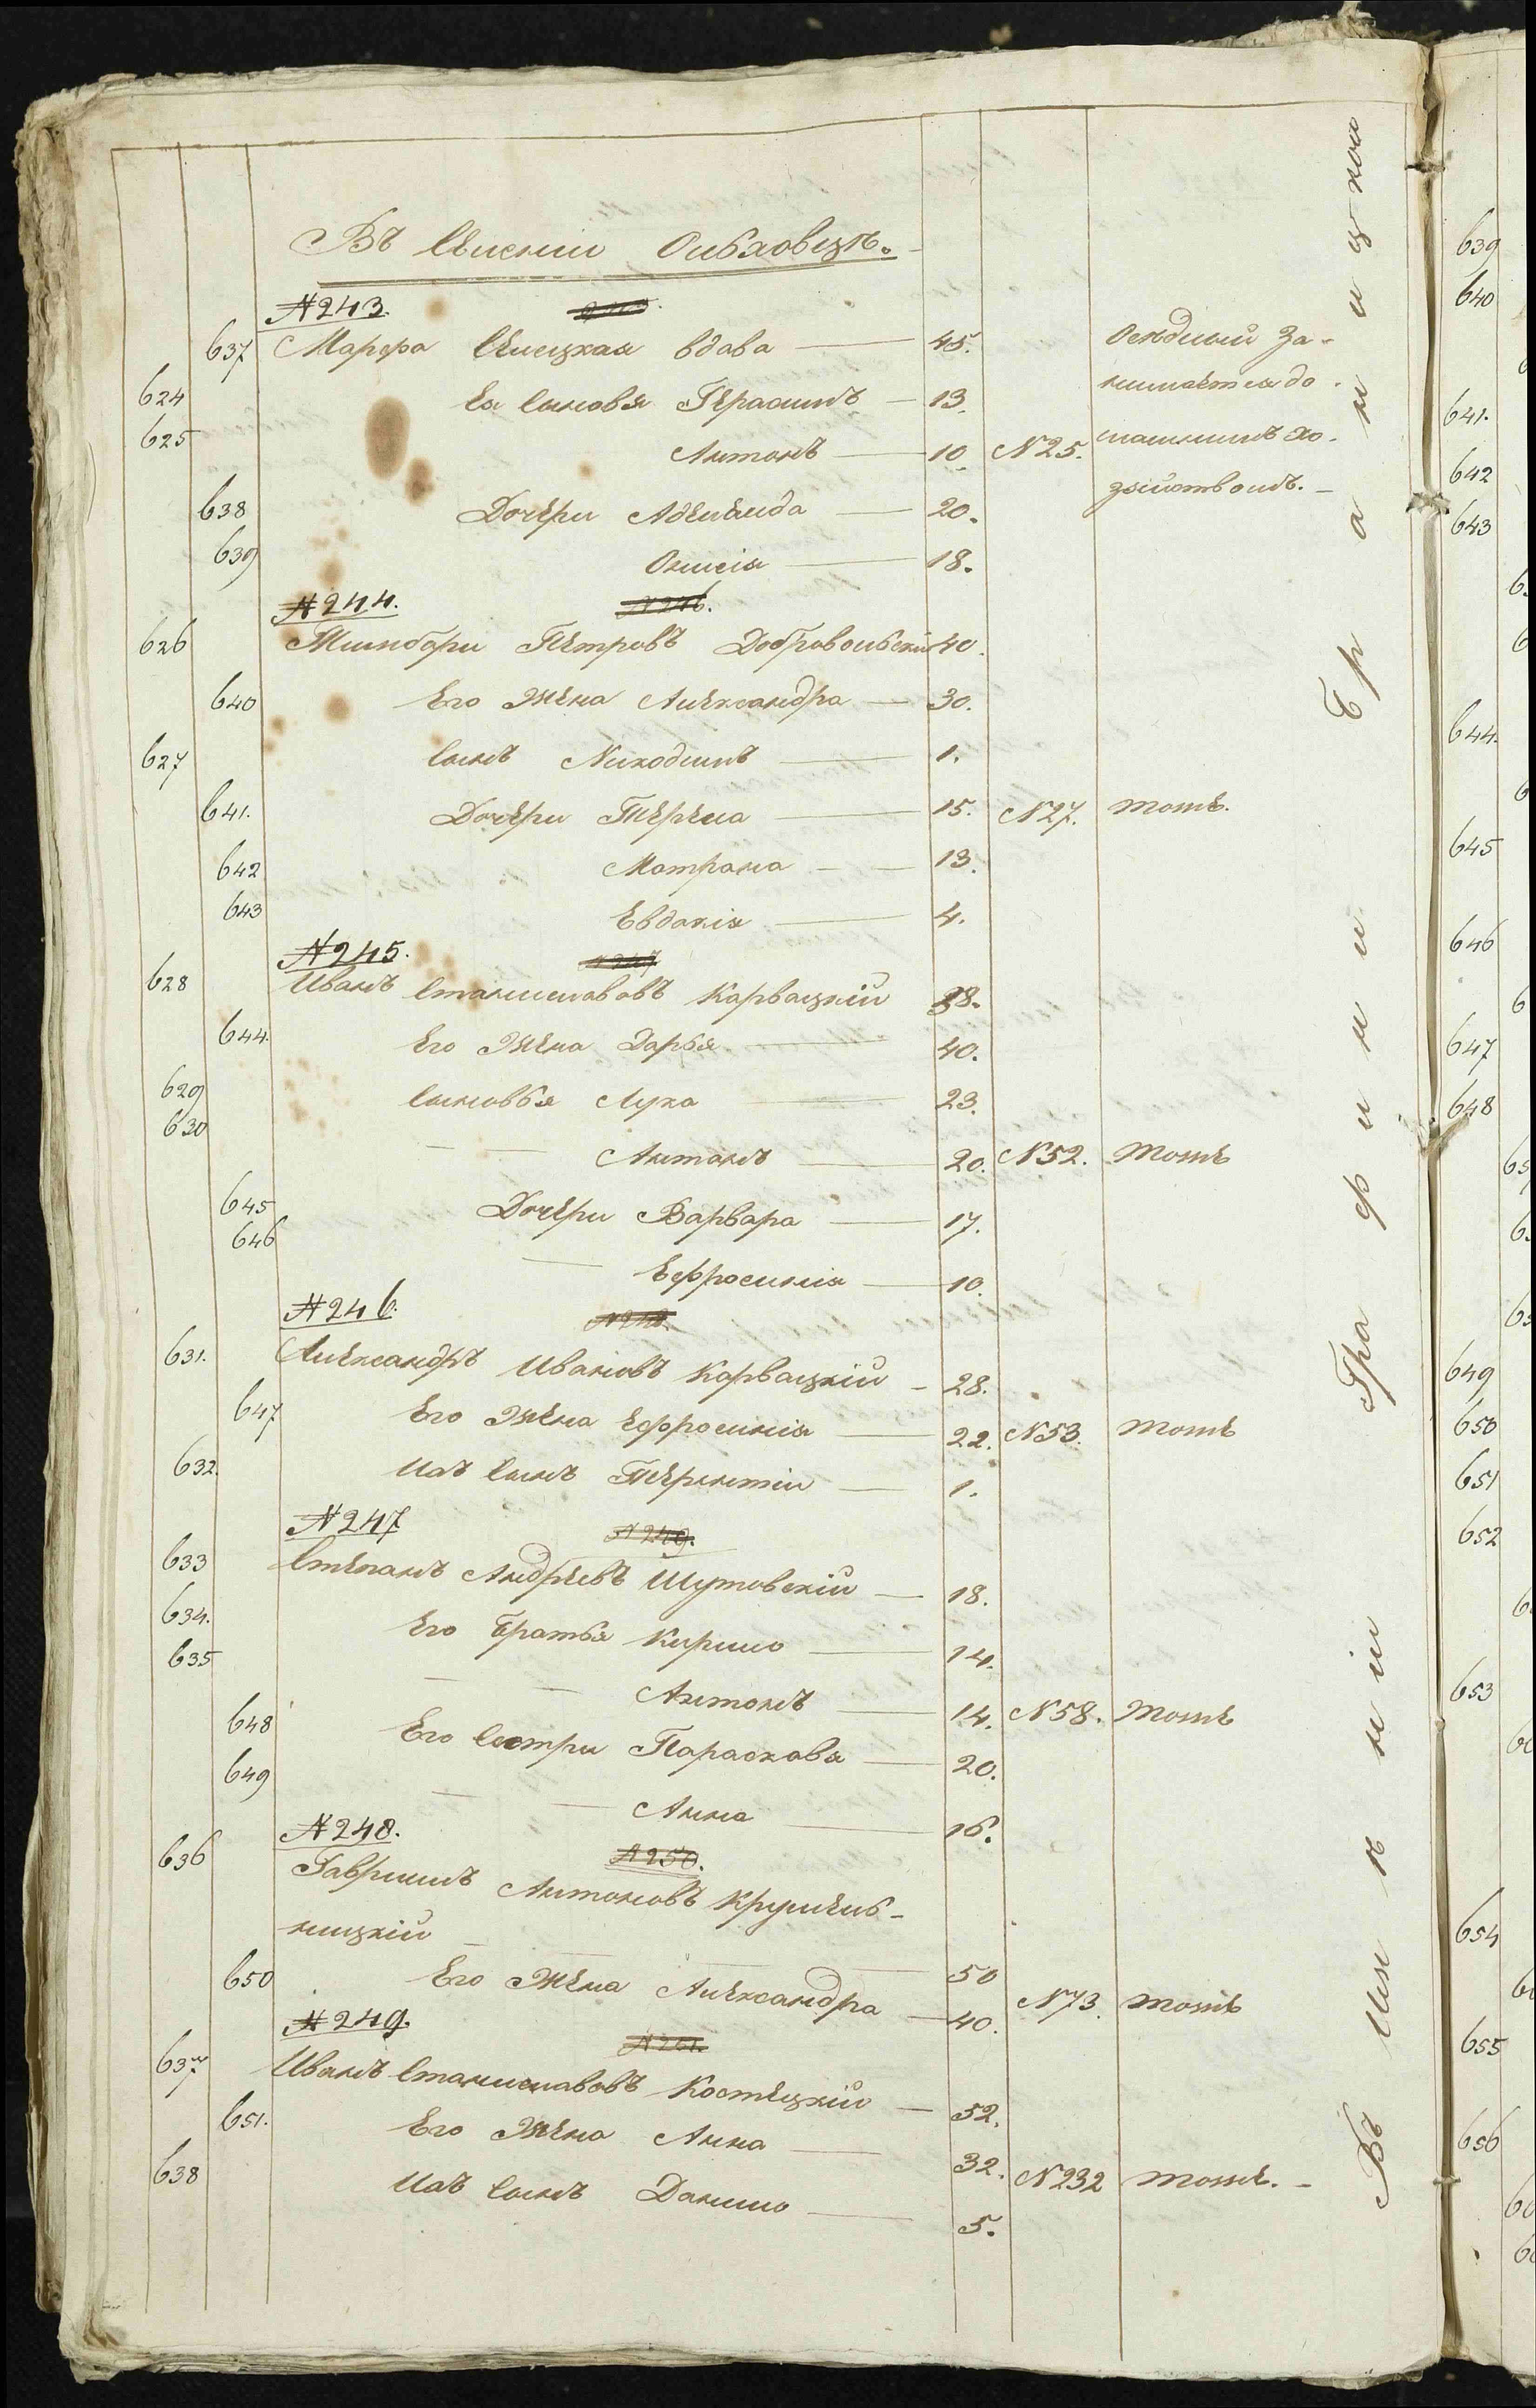 Въ Селеніи Ольховцѣ.
№243.
637 Марфа вдова — 45. Осѣдлый за-
624 Ея сыновья Герасимъ — 13. нимается до-
625 Антонъ — 10. №25. машнимъ хо-
638 Дочери — 20. зяйствомъ. —
639 Онисія — 18.
№244. №246.
626 Петровъ Добровольскій 40.
640 Его жена Александра — 30.
627 Сынъ Никодимъ — 1.
641. Дочери — 15. №27. тожъ.
642 Матрона — 13.
643 Евдокія — 4.
№245. №247
628 Иванъ Станиславовъ Карвацкій 38.
644. Его жена Дарья — 40.
629 Сыновья Лука — 23.
630 — — Антонъ — 20. №52. тожъ
645 Дочери Варвара — 17.
646 — Ефросинія — 10.
№246. №248.
631. Александръ Ивановъ Карвацкій — 28.
647 Его жена Ефросинія — 22. №53. тожъ
632. Ихъ сынъ Терентій — 1.
№247 №249.
633 Степанъ Андреевъ Шутовскій — 18.
634. Его братья Кирило — 14.
635 — — Антонъ — 14. №58. тожъ
648 Его сестри Парасковя — 20.
649 — — Анна — 16.
№248. №250.
636 Гавриилъ Антоновъ Крушель-
ницкій — — — 50
650 Его жена Александра — 40. №73. тожъ
№249. №251.
637 Иванъ Станиславовъ Костецкій — 52.
651. Его жена Анна — 32. №232 тожъ. —
638 Ихъ сынъ Данило — 5.
Въ имѣніи Графини Браницкой
639
640
641.
642
643
644.
645
646
647
648
649
650
651
652
653
654
655
656